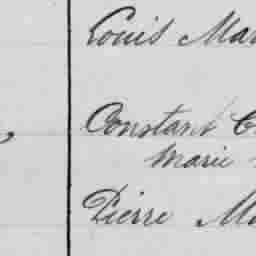 Louis Ma
Constant C
Marie
Pierre Ma